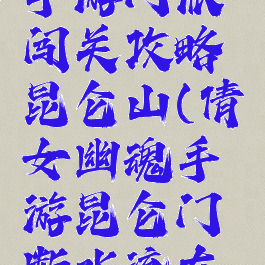 闯关攻略
昆仑山(倩
女幽魂手
游昆仑门